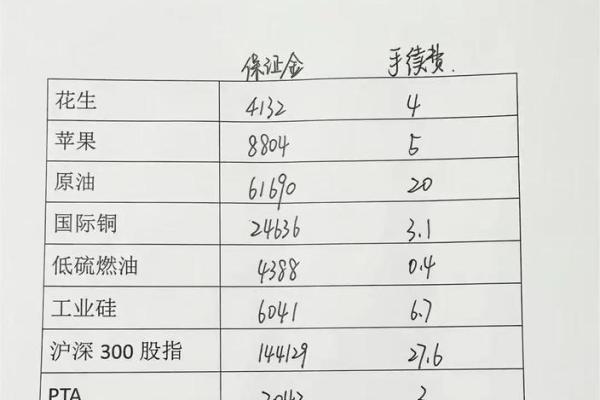 保证金 手续费.
花生 4132 4
苹果 8804 5
原油 61690 20
国际铜 24636 3.1
低硫燃油 4388 0.4
工业硅 6041 6.7
沪深 300 股指 144129 27.6
PTA